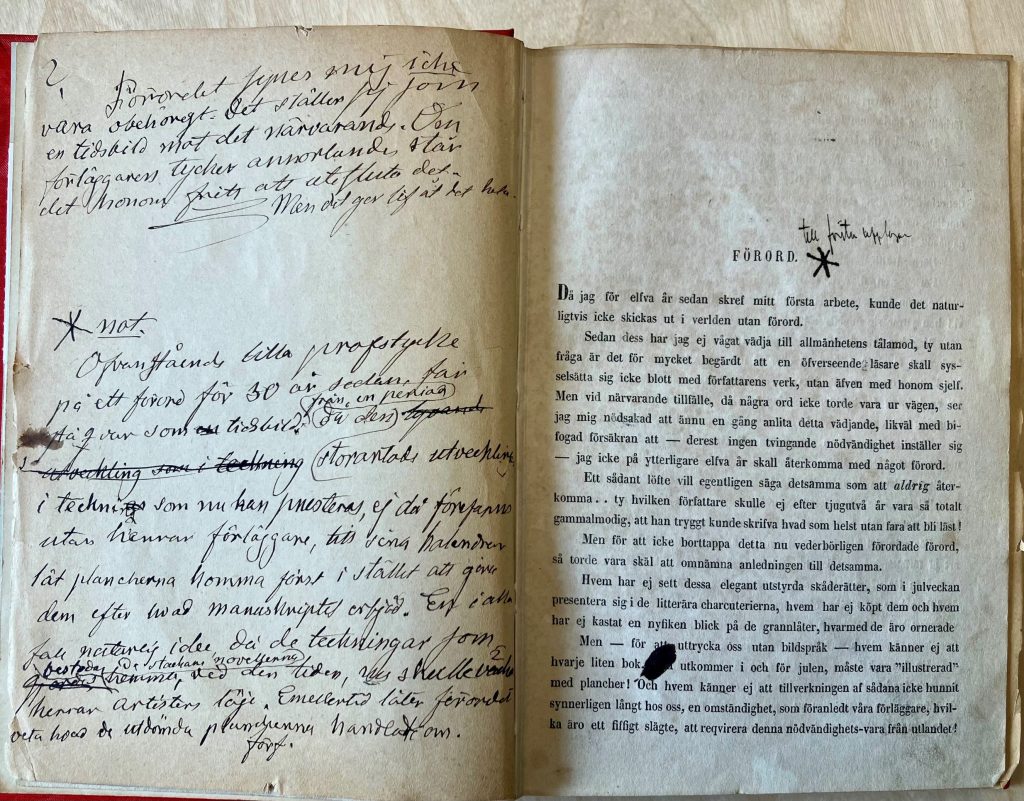 2,
Förordet synes mig icke
vara obehörigt. Det ställer sig som
en tidsbild mot det närvarande. Om
förläggaren tycker annorlunda står
det honom fritt att utesluta det.
Men det ger lif åt det hela.
* not.
Ofvanstående lilla profstycke
på ett förord för 30 år sedan, får
stå qvar som tidsbild. från en period
då den
utveckling som i teckning storartade utveckling
i teckning som nu kan presteras, ej då förefanns
utan herrar förläggare, till sina kalendrar
lät plancherna komma först i stället att göra
dem efter hvad manuskriptet erbjöd. En i alla
fall naturlig idee, då de teckningar som
bestodos i de stackars novellerna
hemma, ved den tiden, skulle
herrar artisters läge. Emellertid låter förordet
veta hvad de utdömda plancherna handlat om.
förf.
till första upplagan
FÖRORD. *
Då jag för elfva år sedan skref mitt första arbete, kunde det natur-
ligtvis icke skickas ut i verlden utan förord.
Sedan dess har jag ej vågat vädja till allmänhetens tålamod, ty utan
fråga är det för mycket begärdt att en öfverseende läsare skall sys-
selsätta sig icke blott med författarens verk, utan äfven med honom sjelf.
Men vid närvarande tillfälle, då några ord icke torde vara ur vägen, ser
jag mig nödsakad att ännu en gång anlita detta vädjande, likväl med bi-
fogad försäkran att — derest ingen tvingande nödvändighet inställer sig
— jag icke på ytterligare elfva år skall återkomma med något förord.
Ett sådant löfte vill egentligen säga detsamma som att aldrig åter-
komma.. ty hvilken författare skulle ej efter tjugutvå år vara så totalt
gammalmodig, att han tryggt kunde skrifva hvad som helst utan fara att bli läst!
Men för att icke borttappa detta nu vederbörligen förordade förord,
så torde vara skäl att omnämna anledningen till detsamma.
Hvem har ej sett dessa elegant utstyrda skåderätter, som i julveckan
presentera sig i de litterära charcuterierna, hvem har ej köpt dem och hvem
har ej kastat en nyfiken blick på de grannlåter, hvarmed de äro ornerade
Men — för att uttrycka oss utan bildspråk — hvem känner ej att
hvarje liten bok, utkommer i och för julen, måste vara "illustrerad"
med plancher! Och hvem känner ej att tillverkningen af sådana icke hunnit
synnerligen långt hos oss, en omständighet, som föranledt våra förläggare, hvil-
ka äro ett fiffigt slägte, att reqvirera denna nödvändighets-vara från utlandet!